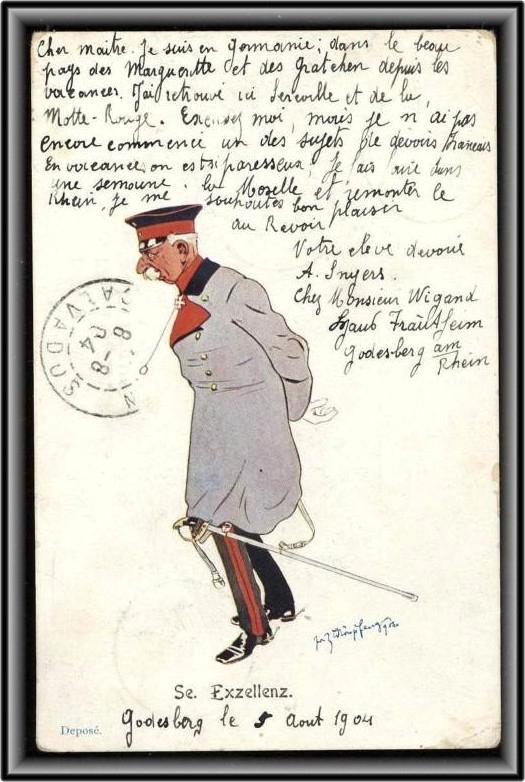 Cher maitre. Je suis en Germanie; dans le beau
pays des Margueritte et des Gratchen depuis les
vacances. J'ai retrouvé ici Serville et de la
Motte-Rouge. Excusez moi, mais je n ai pas
encore commencé un des sujets de devoirs Francais
En vacances on est si paresseux. Je fais dans
une semaine la Moselle et remonter le
Rhein, je me souhaites bon plaisir
au Revoir
Votre eleve devoué
A. Snyers.
Chez Monsieur Wigand
Haus
Godesberg am
Rhein
CALVADOS
8-8
04
Se. Exzellenz.
Deposé.
Godesberg le 5 Aout 1904